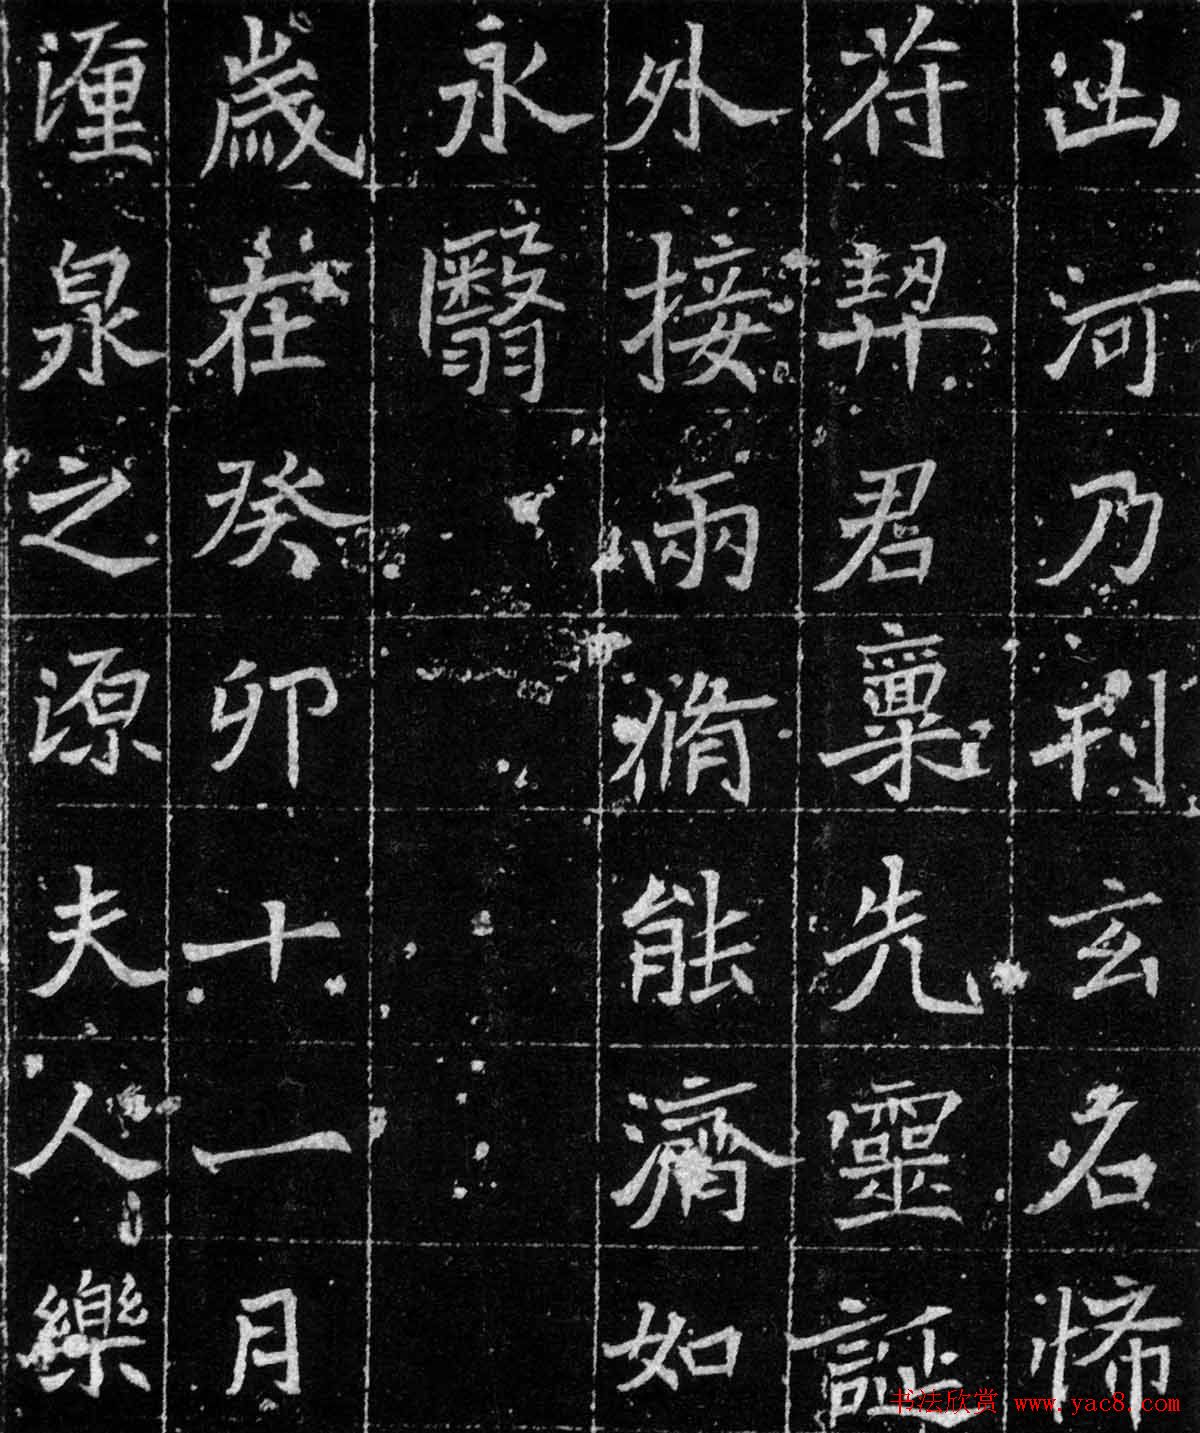 出河乃刊玄名悕
苻契君稟先靈誕
外接兩脩能濟如
永翳
歲在癸卯十一月
湮泉之源夫人樂
书法欣赏 www.yac8.com